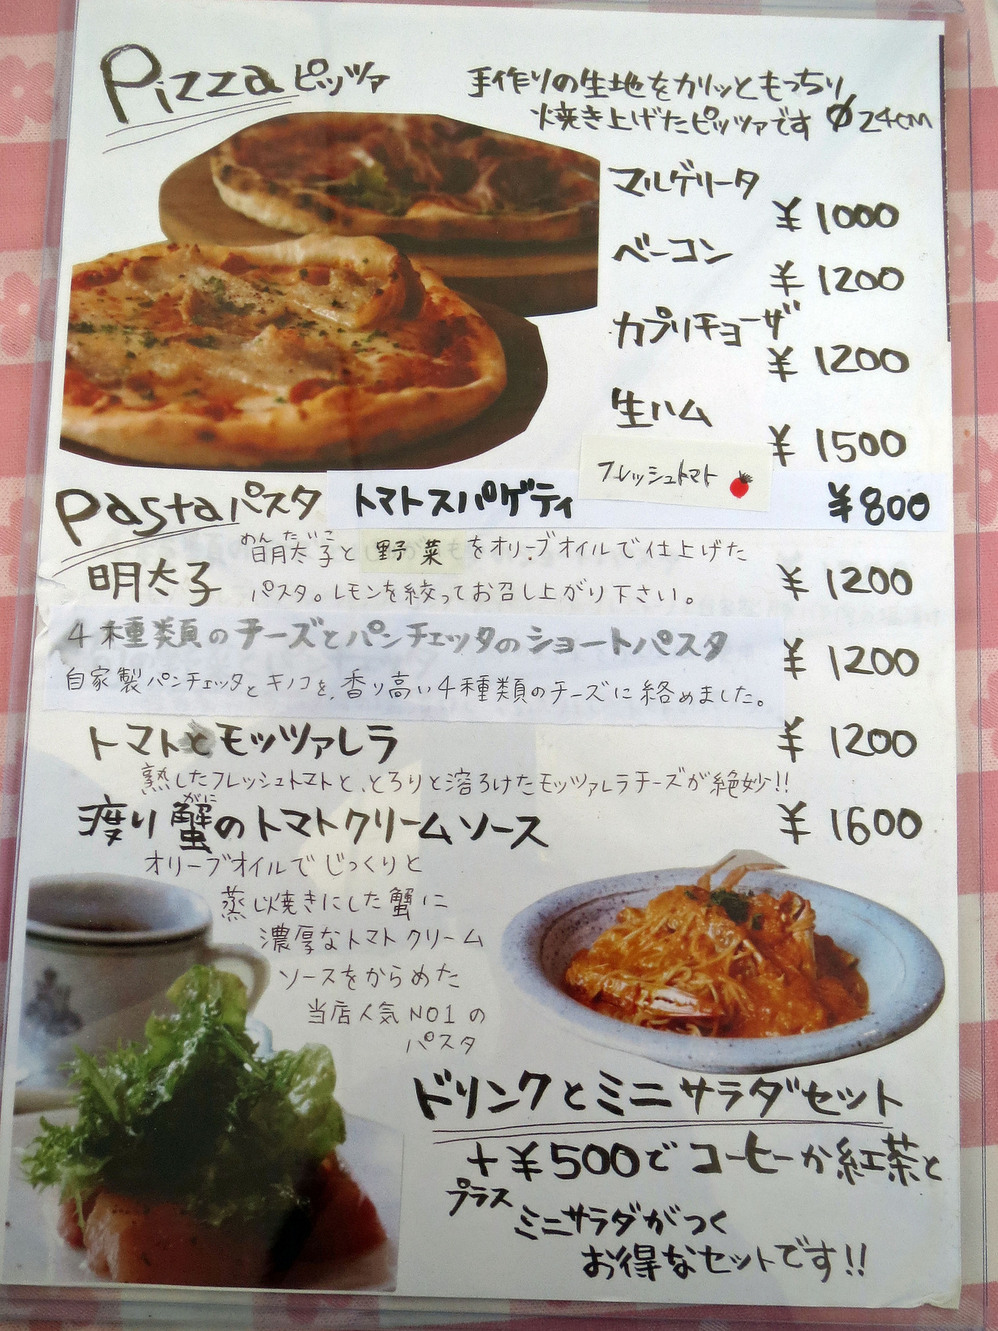 Pizza ピッツァ
手作りの生地をカリッともっちり
焼き上げたピッツァです Φ24cm
マルゲリータ
¥1000
ベーコン
¥1200
カプリチョーザ
¥1200
生ハム
¥1500
フレッシュトマト
Pasta パスタ トマトスパゲティ ¥800
めんたいこ
明太子と野菜をオリーブオイルで仕上げた
明太子 パスタ。レモンを絞ってお召し上がり下さい。 ¥1200
4種類のチーズとパンチェッタのショートパスタ
¥1200
自家製パンチェッタとキノコを、香り高い4種類のチーズに絡めました。
トマトとモッツァレラ ¥1200
熟したフレッシュトマトと、とろりと溶ろけたモッツァレラチーズが絶妙!!
がに
渡り蟹のトマトクリームソース ¥1600
オリーブオイルでじっくりと
蒸し焼きにした蟹に
濃厚なトマトクリーム
ソースをからめた
当店人気NO1の
パスタ
ドリンクとミニサラダセット
+¥500でコーヒーか紅茶と
プラス
ミニサラダがつく
お得なセットです!!